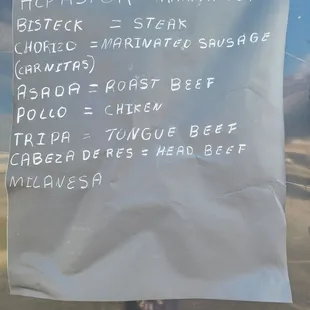 ALPASTOR =
BISTECK = STEAK
CHORIZO = MARINATED SAUSAGE
(CARNITAS)
ASADA = ROAST BEEF
POLLO = CHIKEN
TRIPA = TONGUE BEEF
CABEZA DE RES = HEAD BEEF
MILANESA